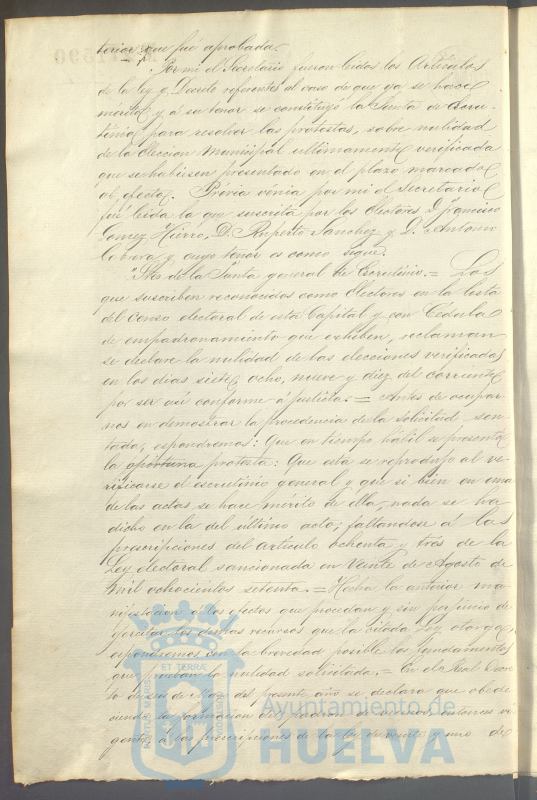 terior que fué aprobada.
Por mi el Secretario fueron leidos los Articulos
de la ley y Decreto referentes al caso de que ya se hace
merito y á su tenor se constituyó la Junta de Escru-
tinio para resolver las protestas, sobre nulidad
de la eleccion Municipal ultimamente verificada
que se habiesen presentado en el plazo marcado
al efecto. Prévia vénia por mi el Secretario
fué leida la que suscrita por los electores D. Francisco
Gomez Hierro, D. Ruperto Sanchez y D. Antonio
y cuyo tenor es como sigue.
"Sres de la Junta general de Escrutinio.= Los
que suscriben reconocidos como electores en la lista
del censo electoral de esta Capital y con Cédula
de empadronamiento que exhiben, reclaman
se declare la nulidad de las elecciones verificadas
en los dias siete, ocho, nueve y diez del corriente
por ser asi conforme á justicia.= Antes de ocupar-
nos en demostrar la procedencia de la solicitud sen-
tada, espondremos: Que en tiempo hábil se presentó
la oportuna protesta: Que esta se reprodujo al ve-
rificarse el escrutinio general y que si bien en una
de las actas se hace mérito de ella, nada se ha
dicho en la del ultimo acto; faltandose á las
prescripciones del articulo ochenta y tres de la
Ley electoral sancionada en Veinte de Agosto de
mil ochocientos setenta.= Hecha la anterior ma-
nifestacion á los efectos que procedan y sin perjuicio de
ejercitar los demas recursos que la citada Ley otorga,
espondremos con la brevedad posible los fundamentos
que prueban la nulidad solicitada.= En el Real Decre-
to de seis de Mayo del presente año se declara que obede
ciendo la formacion del padron de vecinos, entonces vi-
gente á las prescripciones de la ley de veinte y uno de
PORTUS MARIS
ET TERRAE
CUSTODIA
Ayuntamiento de
HUELVA